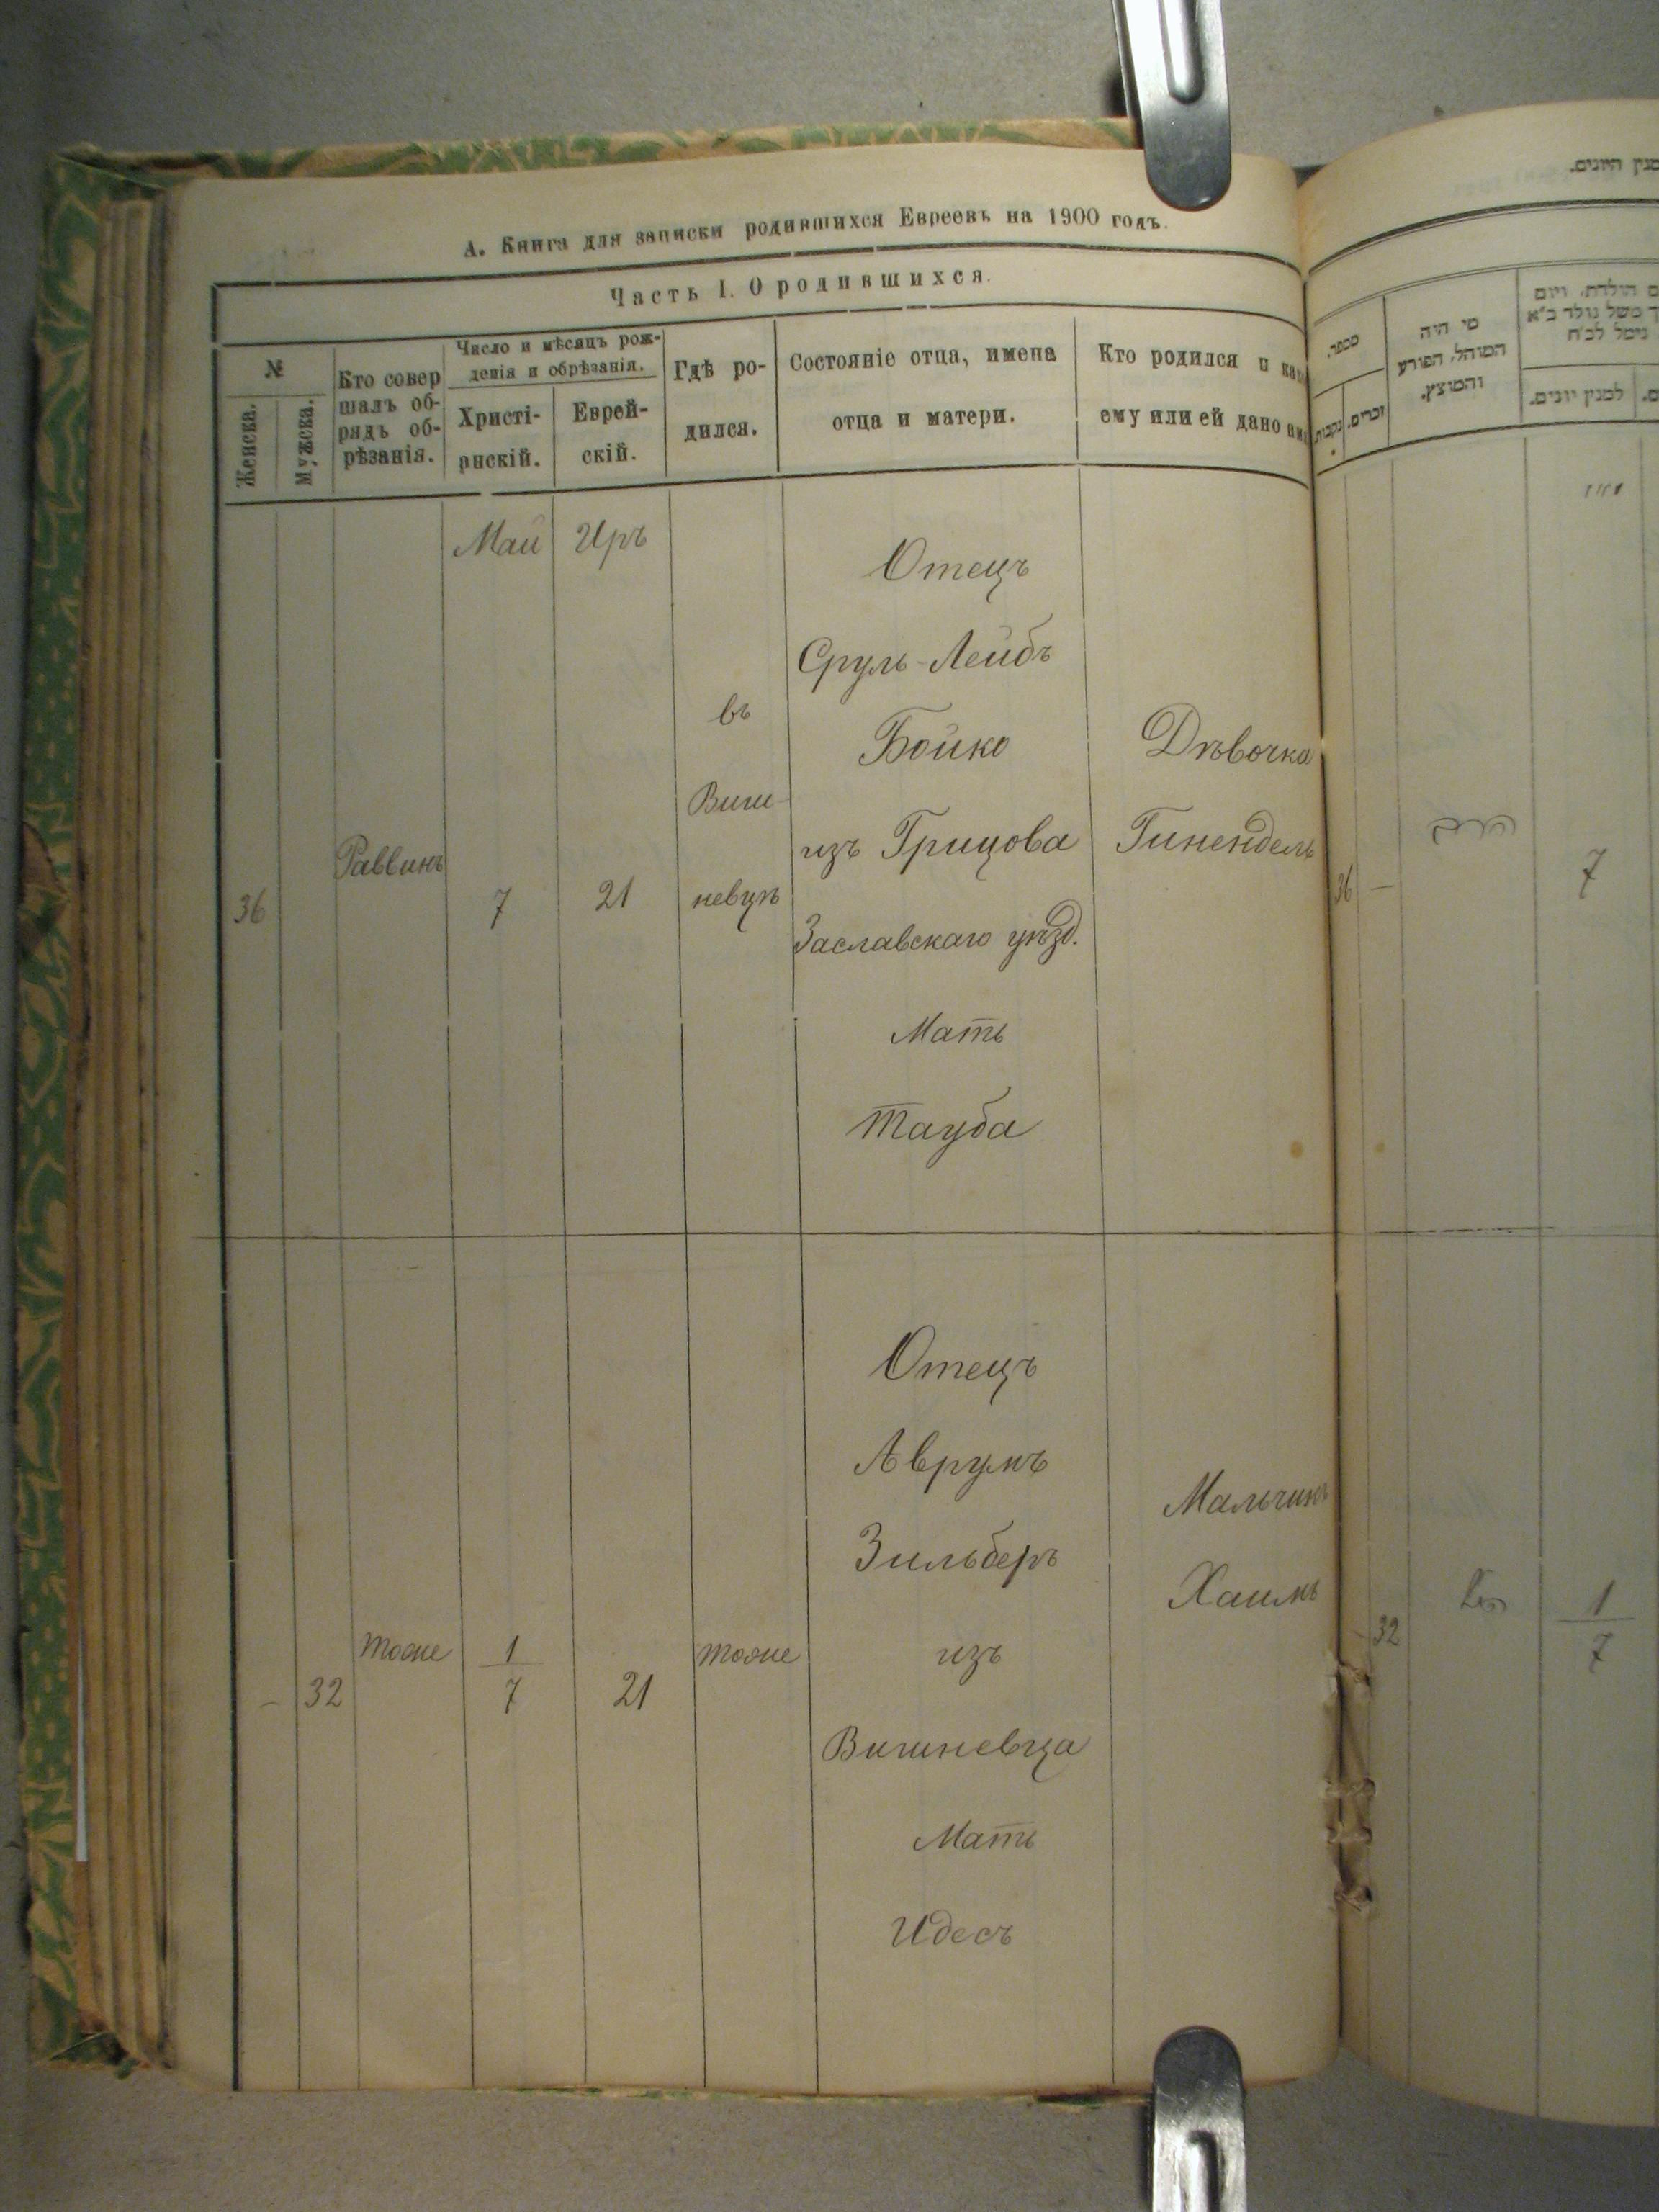 А. Книга для записки родившихся Евреевъ на 1900 годъ.
Часть I. О родившихся.
№
Женска.
Мужска.
Кто совер
шалъ об-
рядъ об-
рѣзанія.
Число и мѣсяцъ рож-
денія и обрѣзанія.
Христі-
анскій.
Еврей-
скій.
Гдѣ ро-
дился.
Состояніе отца, имена
отца и матери.
Кто родился и
ему или ей дано
Май
Иръ
36
Раввинъ
7
21
въ
Виш-
невцѣ
Отецъ
Сруль-Лейбъ
Бойко
изъ Грицова
Заславскаго уѣзд.
Мать
Тауба
Дѣвочка
Гинендель
- 32
тоже
1
7
21
тоже
Отецъ
Аврумъ
Зильберъ
изъ
Вишневца
Мать
Идесъ
Мальчикъ
Хаимъ
היונים.
מספר.
נקבות
זכרים.
מי היה
המוהל, הפורע
והמוצץ.
למנין יונים.
36
-
הרב
7
- 32
1
7